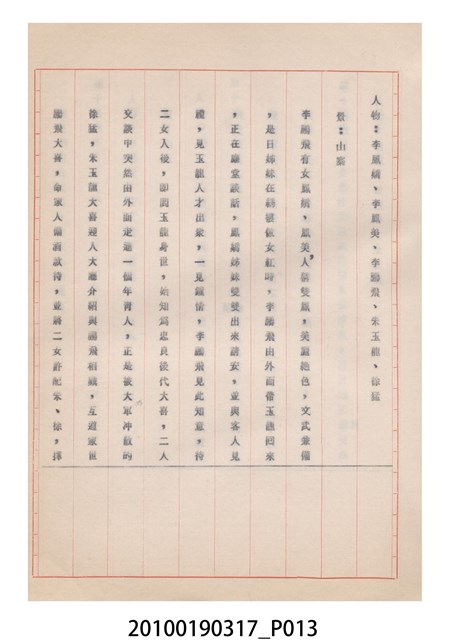 人物：李鳳綢、李鳳美、李勝飛、朱玉龍、徐猛
景：山寨
李勝飛有女鳳綢、鳳美，人稱雙鳳，美麗絕色，文武兼備
，是日姊妹在綉樓做女紅時，李勝飛由外面帶玉龍囘來
，正在廳堂談話，鳳綢姊妹雙雙出來請安，並與客人見
禮，見玉龍人才出衆，一見鍾情，李勝飛見此知意，待
二女入後，卽問玉龍身世，始知爲忠良後代大喜，二人
交談中突然由外面走進一個年青人，正是被大軍冲散的
徐猛，朱玉龍大喜迎入大廳介紹與勝飛相識，互道家世
勝飛大喜，命家人備酒款待，並將二女許配朱、徐，擇
20100190317_P013